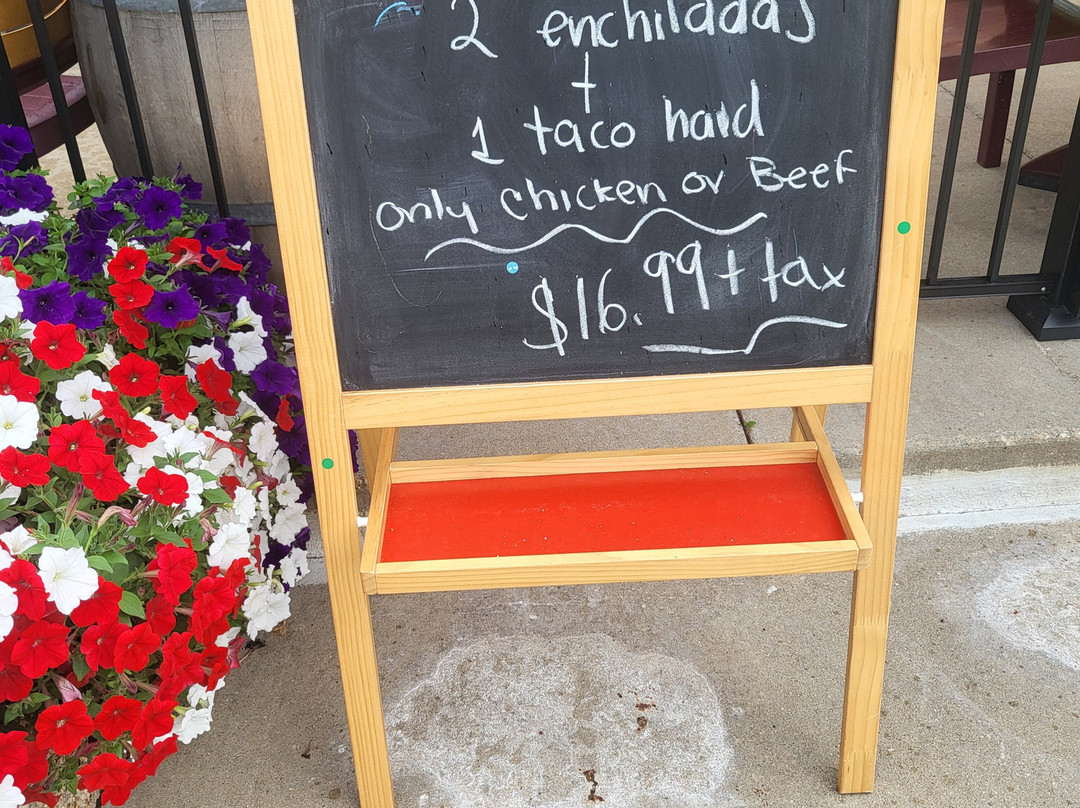 2 enchiladas
+
1 taco hard
only chicken or Beef
$16.99 + tax